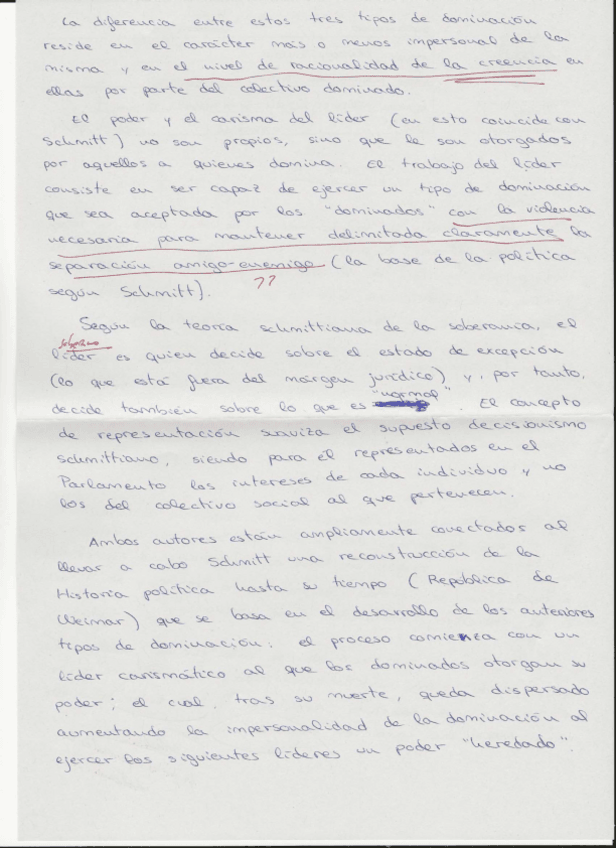 La diferencia entre estos tres tipos de dominación
reside en el carácter más o menos impersonal de la
misma y en el nivel de racionalidad de la creencia en
ellas por parte del colectivo dominado.
El poder y el carisma del líder (en esto coincide con
Schmitt) no son propios, sino que le son otorgados
por aquellos a quienes domina. El trabajo del líder
consiste en ser capaz de ejercer un tipo de dominación
que sea aceptada por los "dominados" con la violencia
necesaria para mantener delimitada claramente la
separación amigo-enemigo (la base de la política
según Schmitt).
??
Según la teoría schmittiana de la soberanía, el
soberano
líder es quien decide sobre el estado de excepción
(lo que está fuera del márgen jurídico) y, por tanto,
decide también sobre lo que es "normal". El concepto
de representación suaviza el supuesto decisionismo
schmittiano, siendo para él representados en el
Parlamento los intereses de cada individuo y no
los del colectivo social al que pertenecen.
Ambos autores están ampliamente conectados al
llevar a cabo Schmitt una reconstrucción de la
Historia política hasta su tiempo (República de
Weimar) que se basa en el desarrollo de los anteriores
tipos de dominación: el proceso comienza con un
líder carismático al que los dominados otorgan su
poder; el cual, tras su muerte, queda dispersado
aumentando la impersonalidad de la dominación al
ejercer los siguientes líderes un poder "heredado".